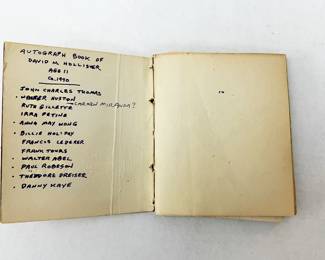 AUTOGRAPH BOOK OF
DAVID M HOLLISTER
AGE 11
CO. 1940
JOHN CHARLES THOMAS
• WALTER HUSTON
CARMEN MIRANDA?
RUTH GILLETTE
IRRA PETINE
• ANNA MAY WONG
• BILLIE HOLIDAY
FRANCIS LEDERER
FRANK TOURS
• WALTER ABEL
• PAUL ROBESON
• THEODORE DREISER
• DANNY KAYE